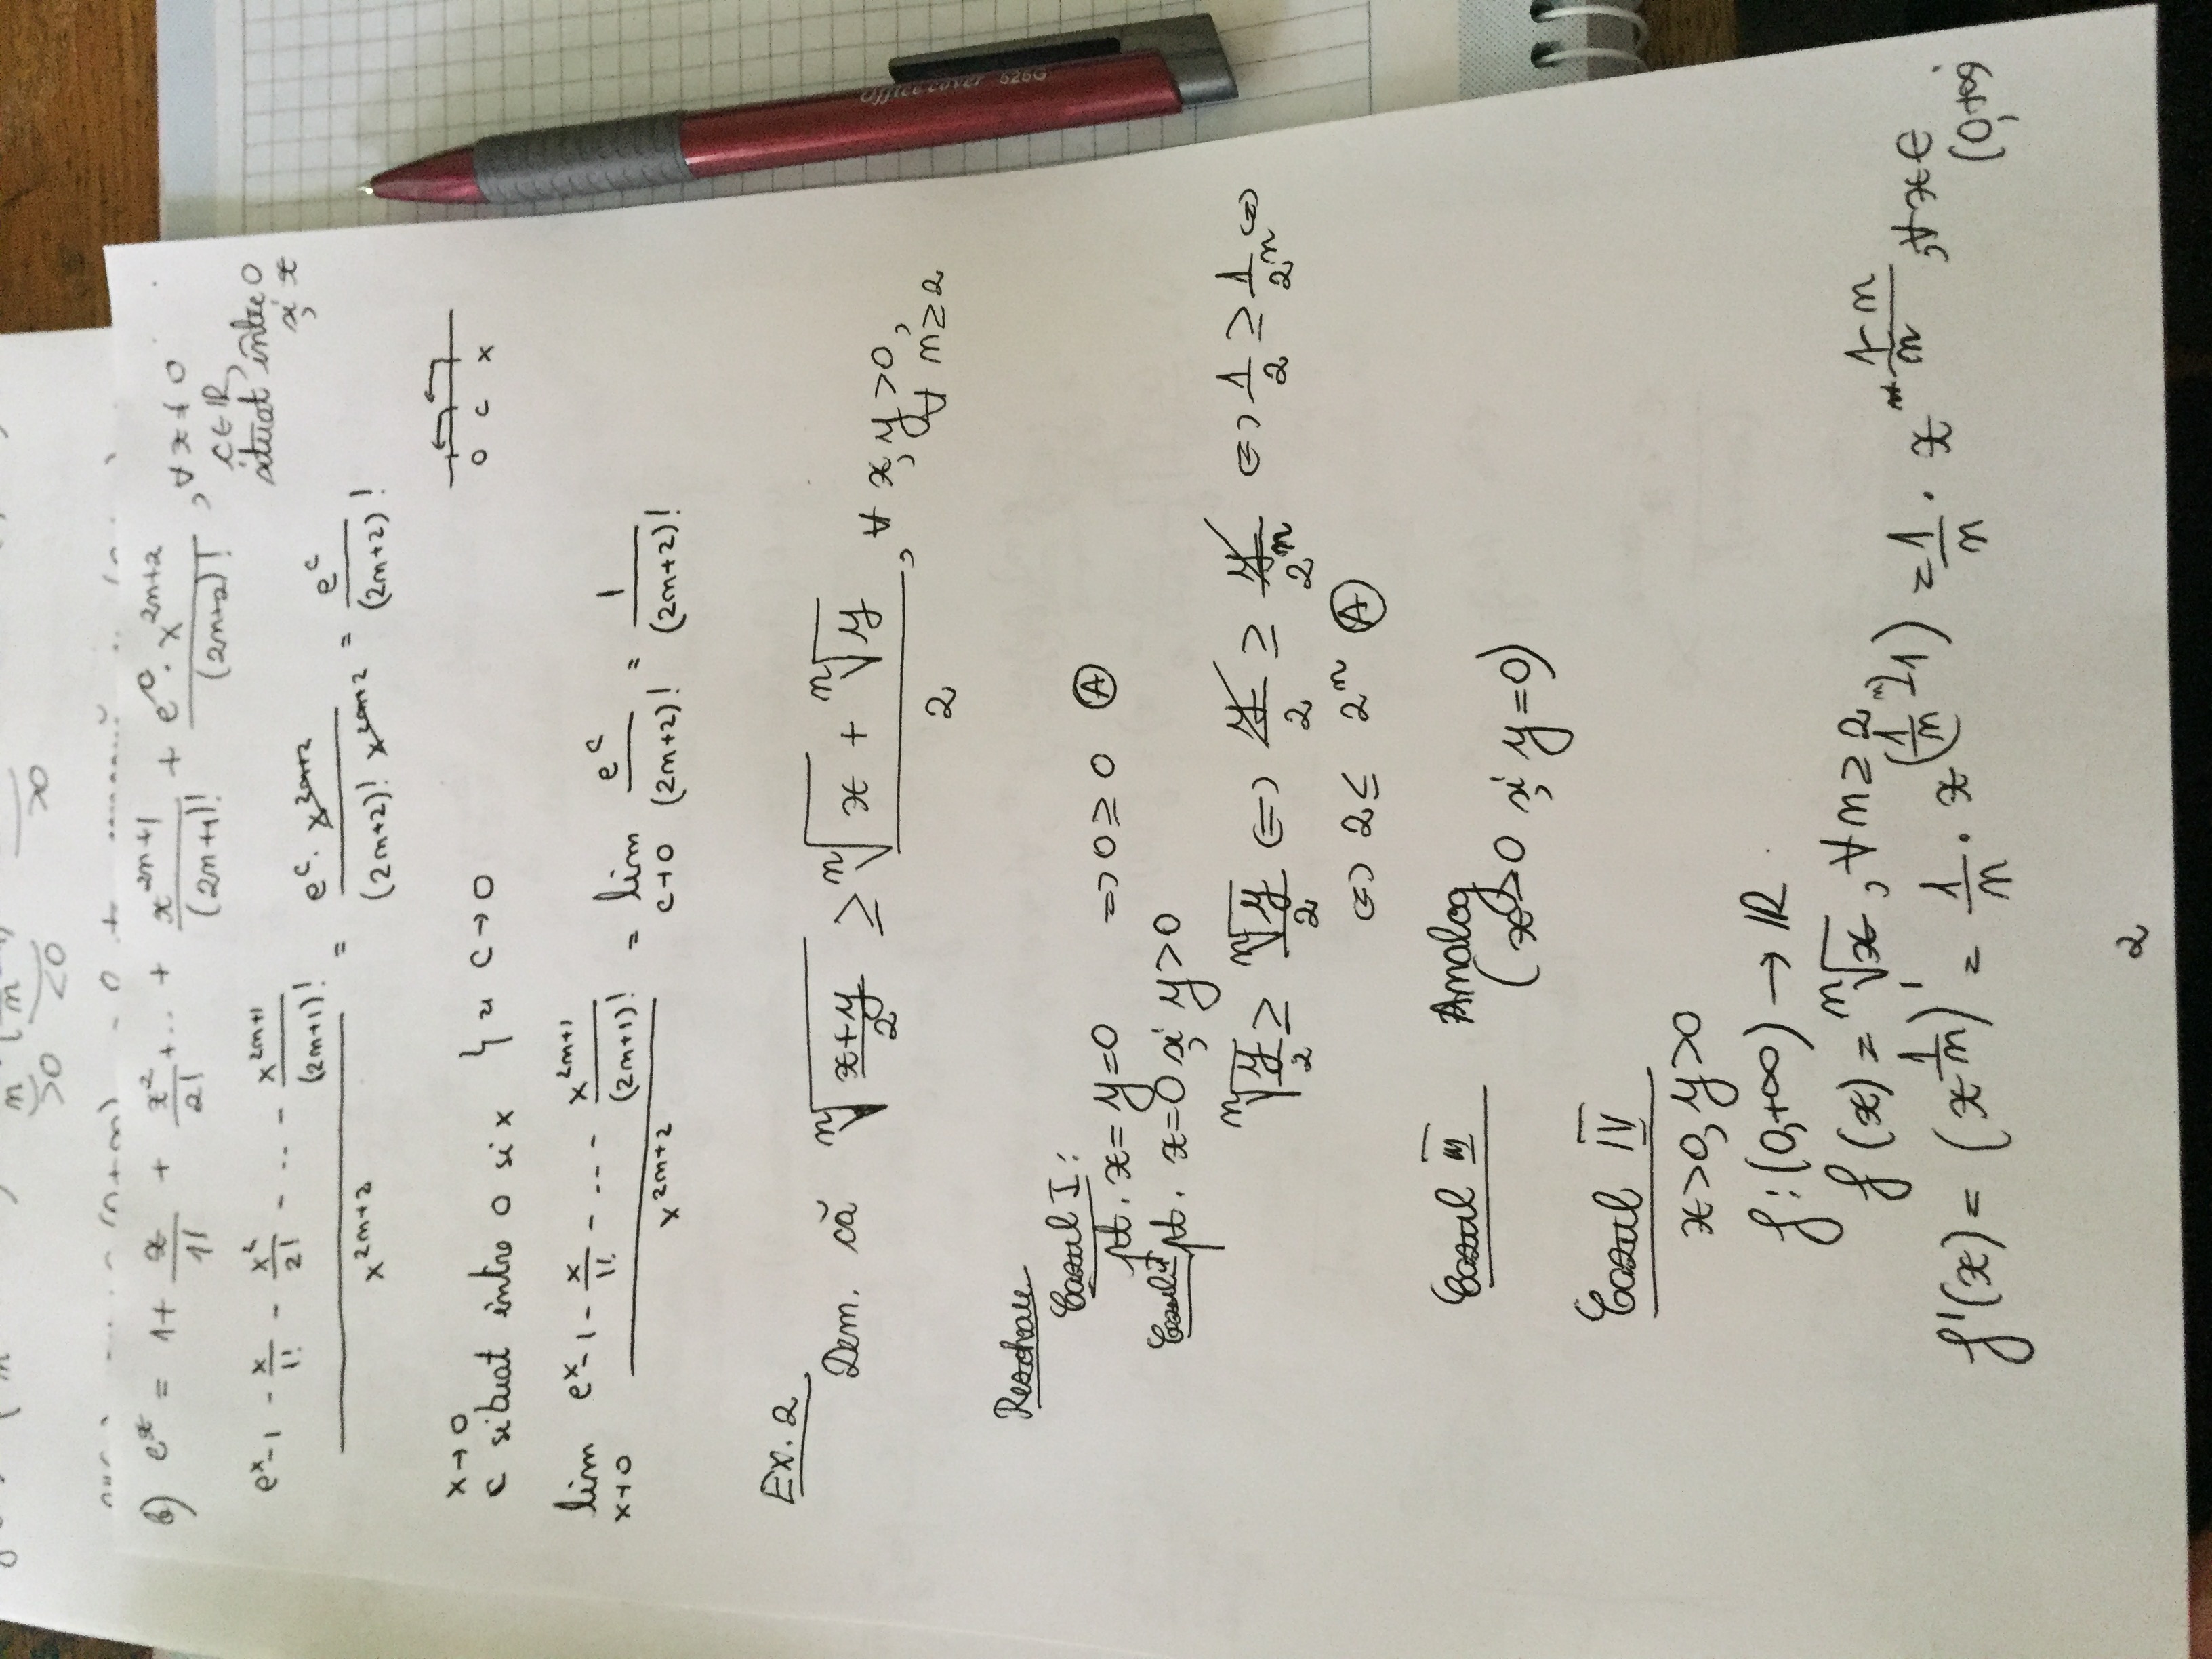 n (1/n
>0 <0 >0
b) e^x = 1 + x/1! + x²/2! + ... + x^(2n+1)/(2n+1)! + e^c · x^(2n+2)/(2n+2)! , ∀ x ≠ 0
c ∈ ℝ,
situat între 0
și x
(e^x - 1 - x/1! - x²/2! - ... - x^(2n+1)/(2n+1)!)/x^(2n+2) = e^c · x^(2n+2)/((2n+2)! x^(2n+2)) = e^c/(2n+2)!
x→0
c situat între 0 si x } => c→0
0 c x
lim x→0 (e^x - 1 - x/1! - ... - x^(2n+1)/(2n+1)!)/x^(2n+2) = lim c→0 e^c/(2n+2)! = 1/(2n+2)!
Ex. 2
Dem. că ⁿ√((x+y)/2) ≥ (ⁿ√x + ⁿ√y)/2 , ∀ x, y >0,
∀ n ≥ 2
Rezolvare
Cazul I:
pt. x = y = 0 => 0 ≥ 0 Ⓐ
Cazul II pt. x = 0 și y > 0
ⁿ√(y/2) ≥ ⁿ√y/2 <=> y/2 ≥ y/2ⁿ <=> 1/2 ≥ 1/2ⁿ <=>
<=> 2 ≤ 2ⁿ Ⓐ
Cazul III Analog
(x>0 și y=0)
Cazul IV
x>0, y>0
f: (0,+∞) → ℝ
f(x) = ⁿ√x , ∀ n ≥ 2
f'(x) = (x^(1/n))' = 1/n · x^(1/n - 1) = 1/n · x^((1-n)/n) , ∀ x ∈
(0,+∞)
2
Office cover 5286